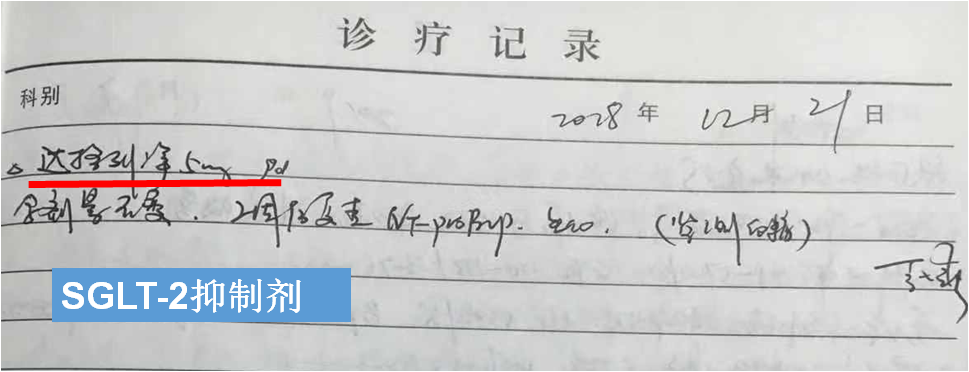 诊疗记录
科别
2028年 12月 21日
△ 达格列净 5mg qd
余剂量不变. 2周后复查 NT-proBnp. (监测血糖)
SGLT-2抑制剂